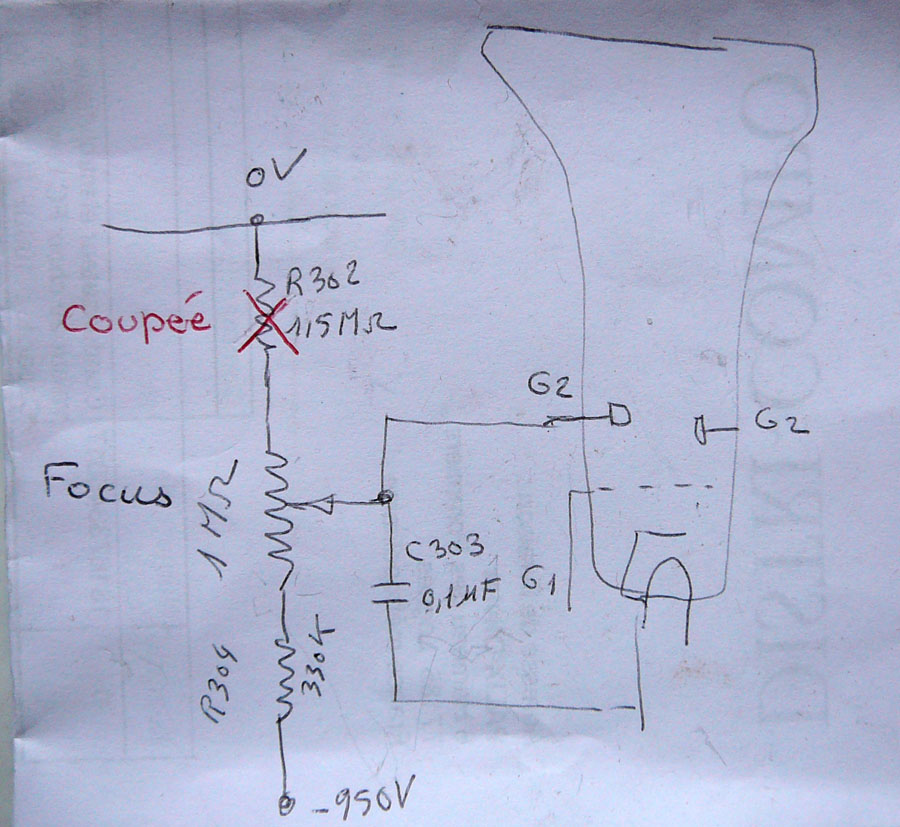 0V
R302
Coupeé
1,5MΩ
G2
G2
Focus
1MΩ
C303
0,1µF
G1
R304
330K
-950V
DISTRI COMPO